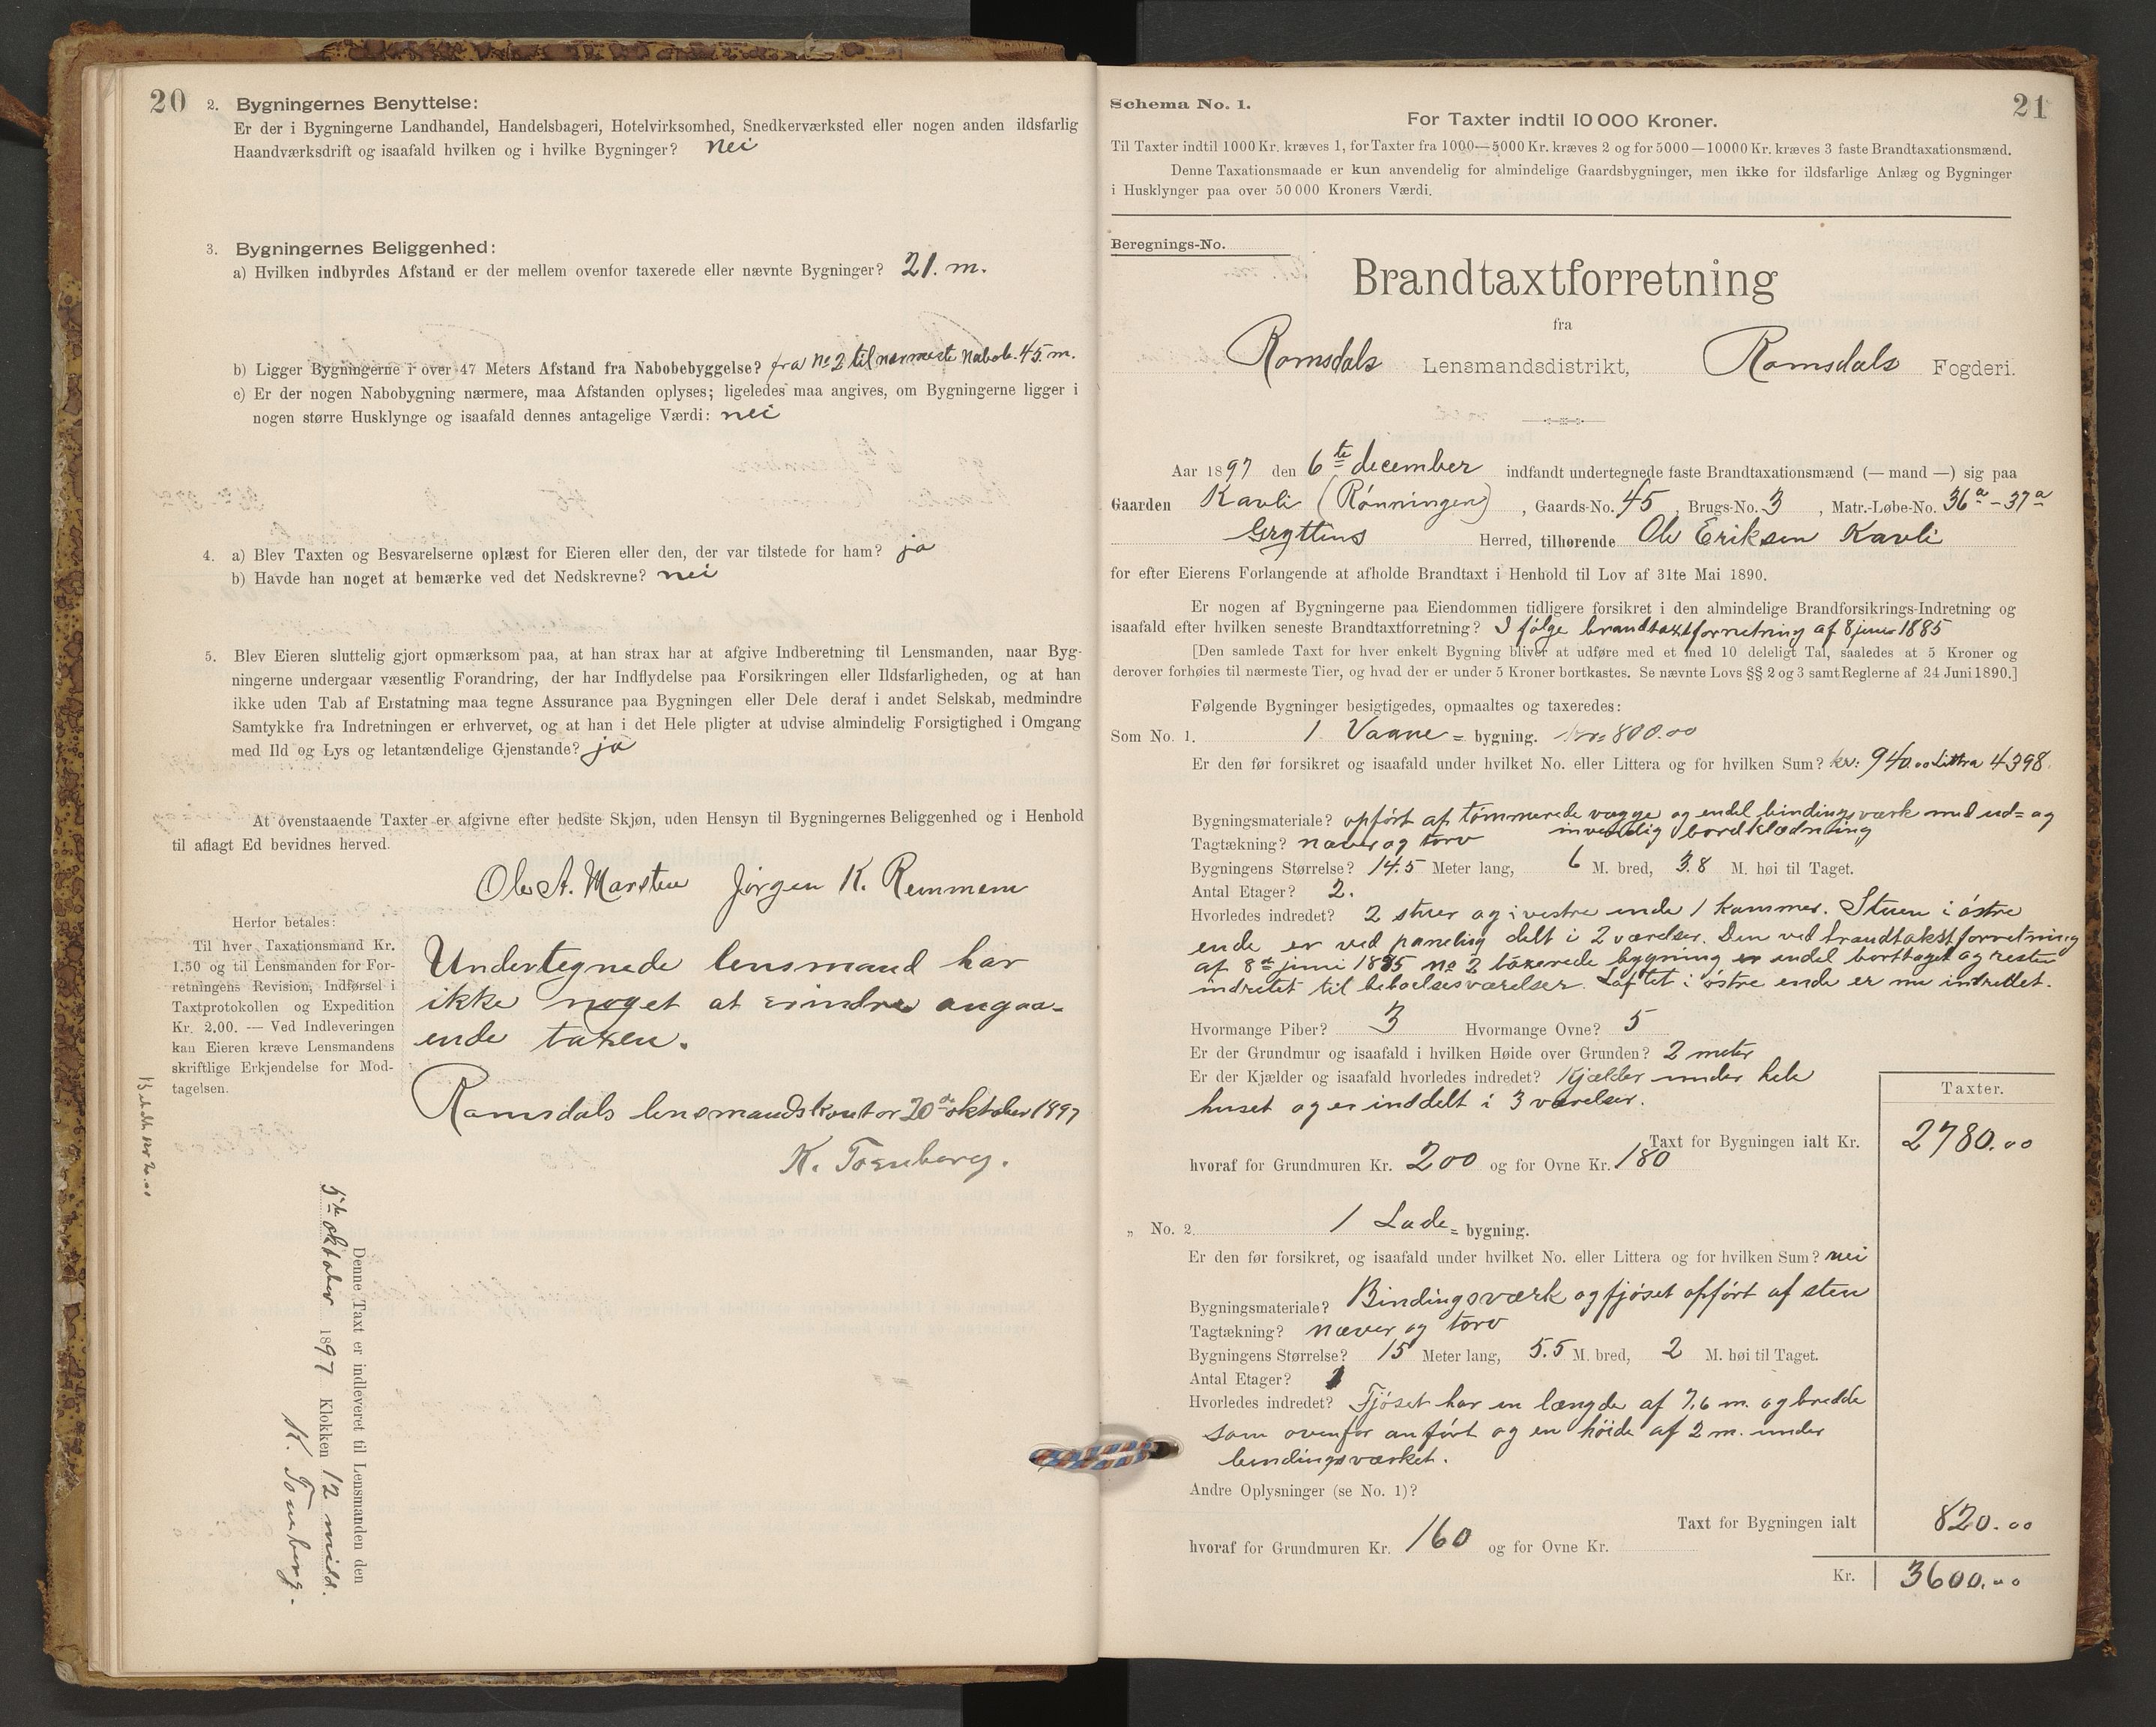 20
2. Bygningernes Benyttelse:
Er der i Bygningerne Landhandel, Handelsbageri, Hotelvirksomhed, Snedkerværksted eller nogen anden ildsfarlig
Haandværksdrift og isaafald hvilken og i hvilke Bygninger? nei
3. Bygningernes Beliggenhed:
a) Hvilken indbyrdes Afstand er der mellem ovenfor taxerede eller nævnte Bygninger? 21. m.
b) Ligger Bygningerne i over 47 Meters Afstand fra Nabobebyggelse? fra No 2 til nærmeste Nabob. 45. m.
c) Er der nogen Nabobygning nærmere, maa Afstanden oplyses; ligeledes maa angives, om Bygningerne ligger i
nogen større Husklynge og isaafald dennes antagelige Værdi: nei
4. a) Blev Taxten og Besvarelserne oplæst for Eieren eller den, der var tilstede for ham? ja
b) Havde han noget at bemærke ved det Nedskrevne? nei
5. Blev Eieren sluttelig gjort opmærksom paa, at han strax har at afgive Indberetning til Lensmanden, naar Byg-
ningerne undergaar væsentlig Forandring, der har Indflydelse paa Forsikringen eller Ildsfarligheden, og at han
ikke uden Tab af Erstatning maa tegne Assurance paa Bygningen eller Dele deraf i andet Selskab, medmindre
Samtykke fra Indretningen er erhvervet, og at han i det Hele pligter at udvise almindelig Forsigtighed i Omgang
med Ild og Lys og letantændelige Gjenstande? ja
At ovenstaaende Taxter er afgivne efter bedste Skjøn, uden Hensyn til Bygningernes Beliggenhed og i Henhold
til aflagt Ed bevidnes herved.
Ole A. Marsten Jørgen K. Remmem
Herfor betales:
Til hver Taxationsmand Kr.
1.50 og til Lensmanden for For-
retningens Revision, Indførsel i
Taxtprotokollen og Expedition
Kr. 2.00. — Ved Indleveringen
kan Eieren kræve Lensmandens
skriftlige Erkjendelse for Mod-
tagelsen.
Undertegnede lensmand har
ikke noget at erindre angaa-
ende taxen.
Romsdals lensmandskontor 20de oktober 1897
K. Tornberg.
Betalt Kr 2.00
Denne Taxt er indleveret til Lensmanden den
5te oktober 1897 Klokken 12 midd.
K. Tornberg.
Schema No. 1.
21
For Taxter indtil 10 000 Kroner.
Til Taxter indtil 1000 Kr. kræves 1, for Taxter fra 1000—5000 Kr. kræves 2 og for 5000—10000 Kr. kræves 3 faste Brandtaxationsmænd.
Denne Taxationsmaade er kun anvendelig for almindelige Gaardsbygninger, men ikke for ildsfarlige Anlæg og Bygninger
i Husklynger paa over 50 000 Kroners Værdi.
Beregnings-No.
Brandtaxtforretning
fra
Romsdals Lensmandsdistrikt, Romsdals Fogderi.
Aar 1897 den 6te december indfandt undertegnede faste Brandtaxationsmænd (— mand —) sig paa
Gaarden Kavli (Rønningen), Gaards-No. 45, Brugs-No. 3, Matr.-Løbe-No. 36a – 37a
Gryttens Herred, tilhørende Ole Eriksen Kavli
for efter Eierens Forlangende at afholde Brandtaxt i Henhold til Lov af 31te Mai 1890.
Er nogen af Bygningerne paa Eiendommen tidligere forsikret i den almindelige Brandforsikrings-Indretning og
isaafald efter hvilken seneste Brandtaxtforretning? I følge brandtaxtforretning af 8 juni 1885
[Den samlede Taxt for hver enkelt Bygning bliver at udføre med et med 10 deleligt Tal, saaledes at 5 Kroner og
derover forhøies til nærmeste Tier, og hvad der er under 5 Kroner bortkastes. Se nævnte Lovs §§ 2 og 3 samt Reglerne af 24 Juni 1890.]
Følgende Bygninger besigtigedes, opmaaltes og taxeredes:
Som No. 1. 1 Vaane = bygning. Kr: 800.00
Er den før forsikret og isaafald under hvilket No. eller Littera og for hvilken Sum? kr: 940.00 Littra 4398.
Bygningsmateriale? opført af tømmerede vægge og endel bindingsværk med ud= og
indvendig bordklædning
Tagtækning? næver og torv
Bygningens Størrelse? 14.5 Meter lang, 6 M. bred, 3.8 M. høi til Taget.
Antal Etager? 2.
Hvorledes indredet? 2 stuer og i vestre ende 1 kammer. Stuen i østre
ende er ved paneling delt i 2 værelser. Den ved brandtakstforretning
af 8de juni 1885 no 2 taxerede bygning er endel borttaget og resten
indredet til beboelsesværelser. Loftet i østre ende er nu indredet.
Hvormange Piber? 3 Hvormange Ovne? 5
Er der Grundmur og isaafald i hvilken Høide over Grunden? 2 meter
Er der Kjælder og isaafald hvorledes indredet? Kjælder under hele
huset og er inddelt i 3 værelser.
Taxter.
Taxt for Bygningen ialt Kr. 2780.00
hvoraf for Grundmuren Kr. 200 og for Ovne Kr. 180
„ No. 2. 1 Lade = bygning.
Er den før forsikret, og isaafald under hvilket No. eller Littera og for hvilken Sum? nei
Bygningsmateriale? Bindingsværk og fjøset opført af sten
Tagtækning? næver og torv
Bygningens Størrelse? 15 Meter lang, 5.5 M. bred, 2 M. høi til Taget.
Antal Etager? 1
Hvorledes indredet? Fjøset har en længde af 7,6 m. og bredde
som ovenfor anført og en høide af 2 m. under
bindingsværket.
Andre Oplysninger (se No. 1)?
Taxt for Bygningen ialt 820.00
hvoraf for Grundmuren Kr. 160 og for Ovne Kr.
Kr. 3600.00